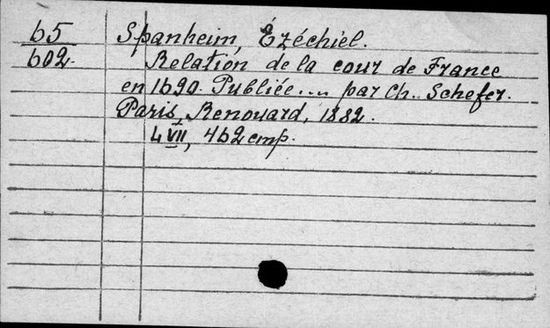 65 Spanheim, Ézéchiel.
602. Relation de la cour de France
en 1690. Publiée... par Ch. Schefer.
Paris, Renouard, 1882.
L VII, 462 стр.